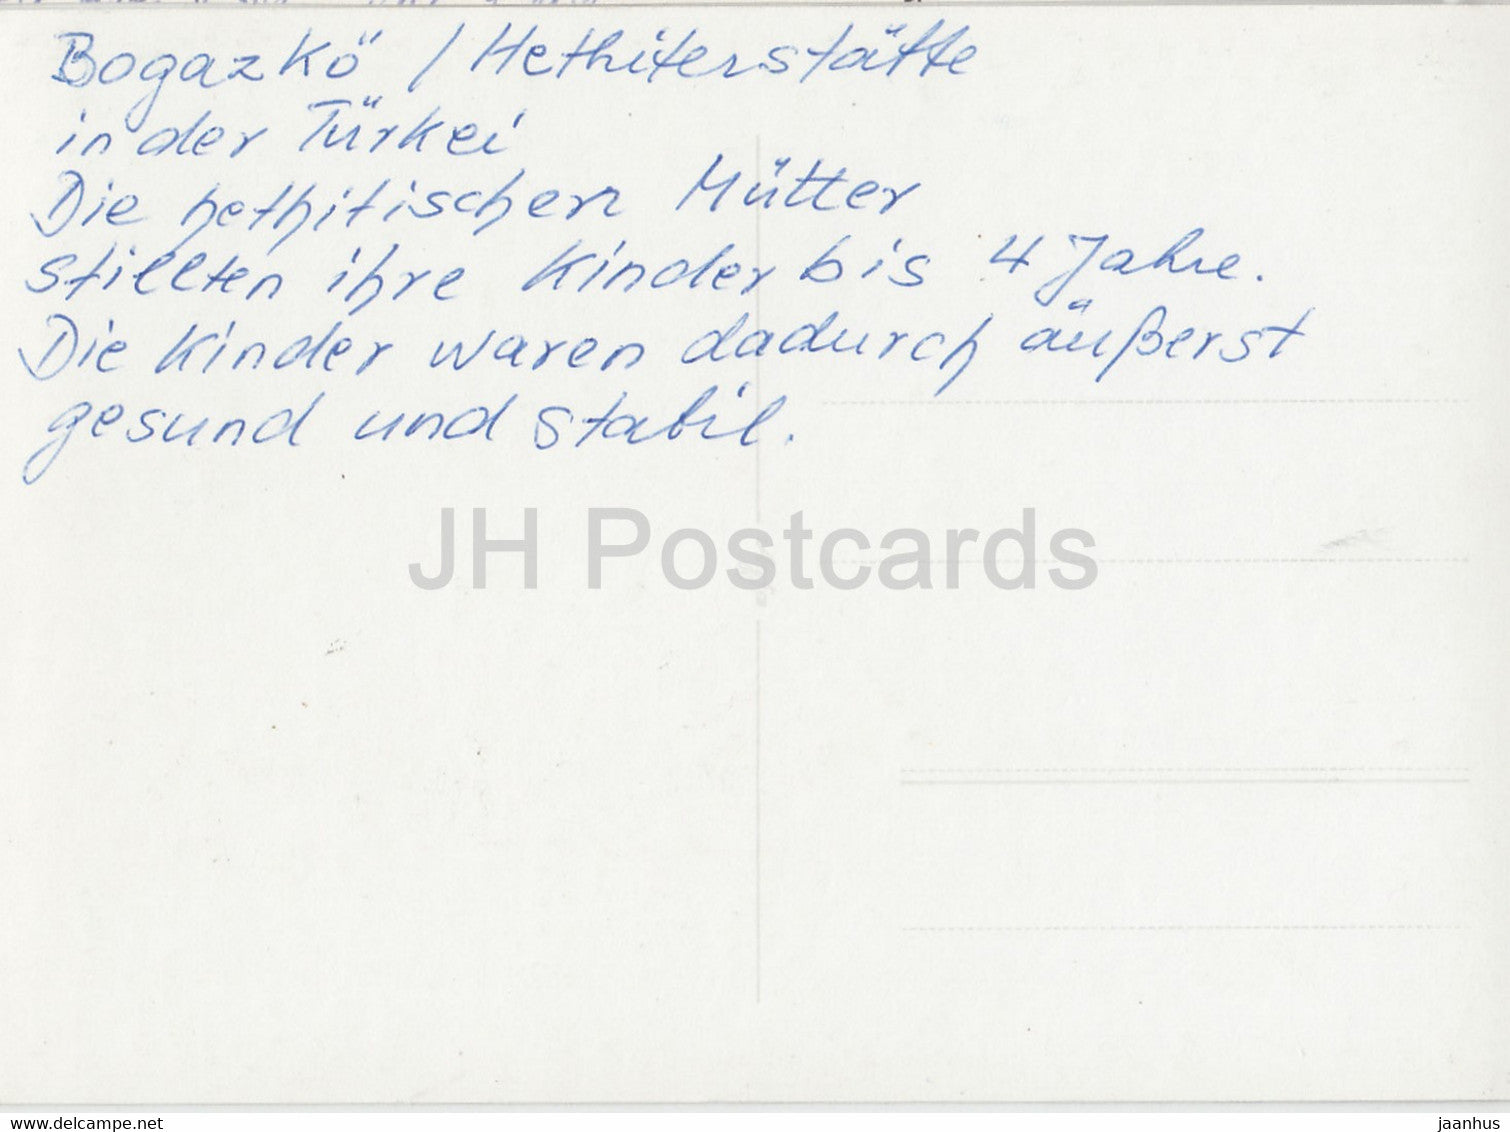 Bogazkö / Hethiterstätte
in der Türkei
Die hethitischen Mütter
stillten ihre Kinder bis 4 Jahre.
Die Kinder waren dadurch äußerst
gesund und stabil.
JH Postcards
www.delcampe.net
jaanhus